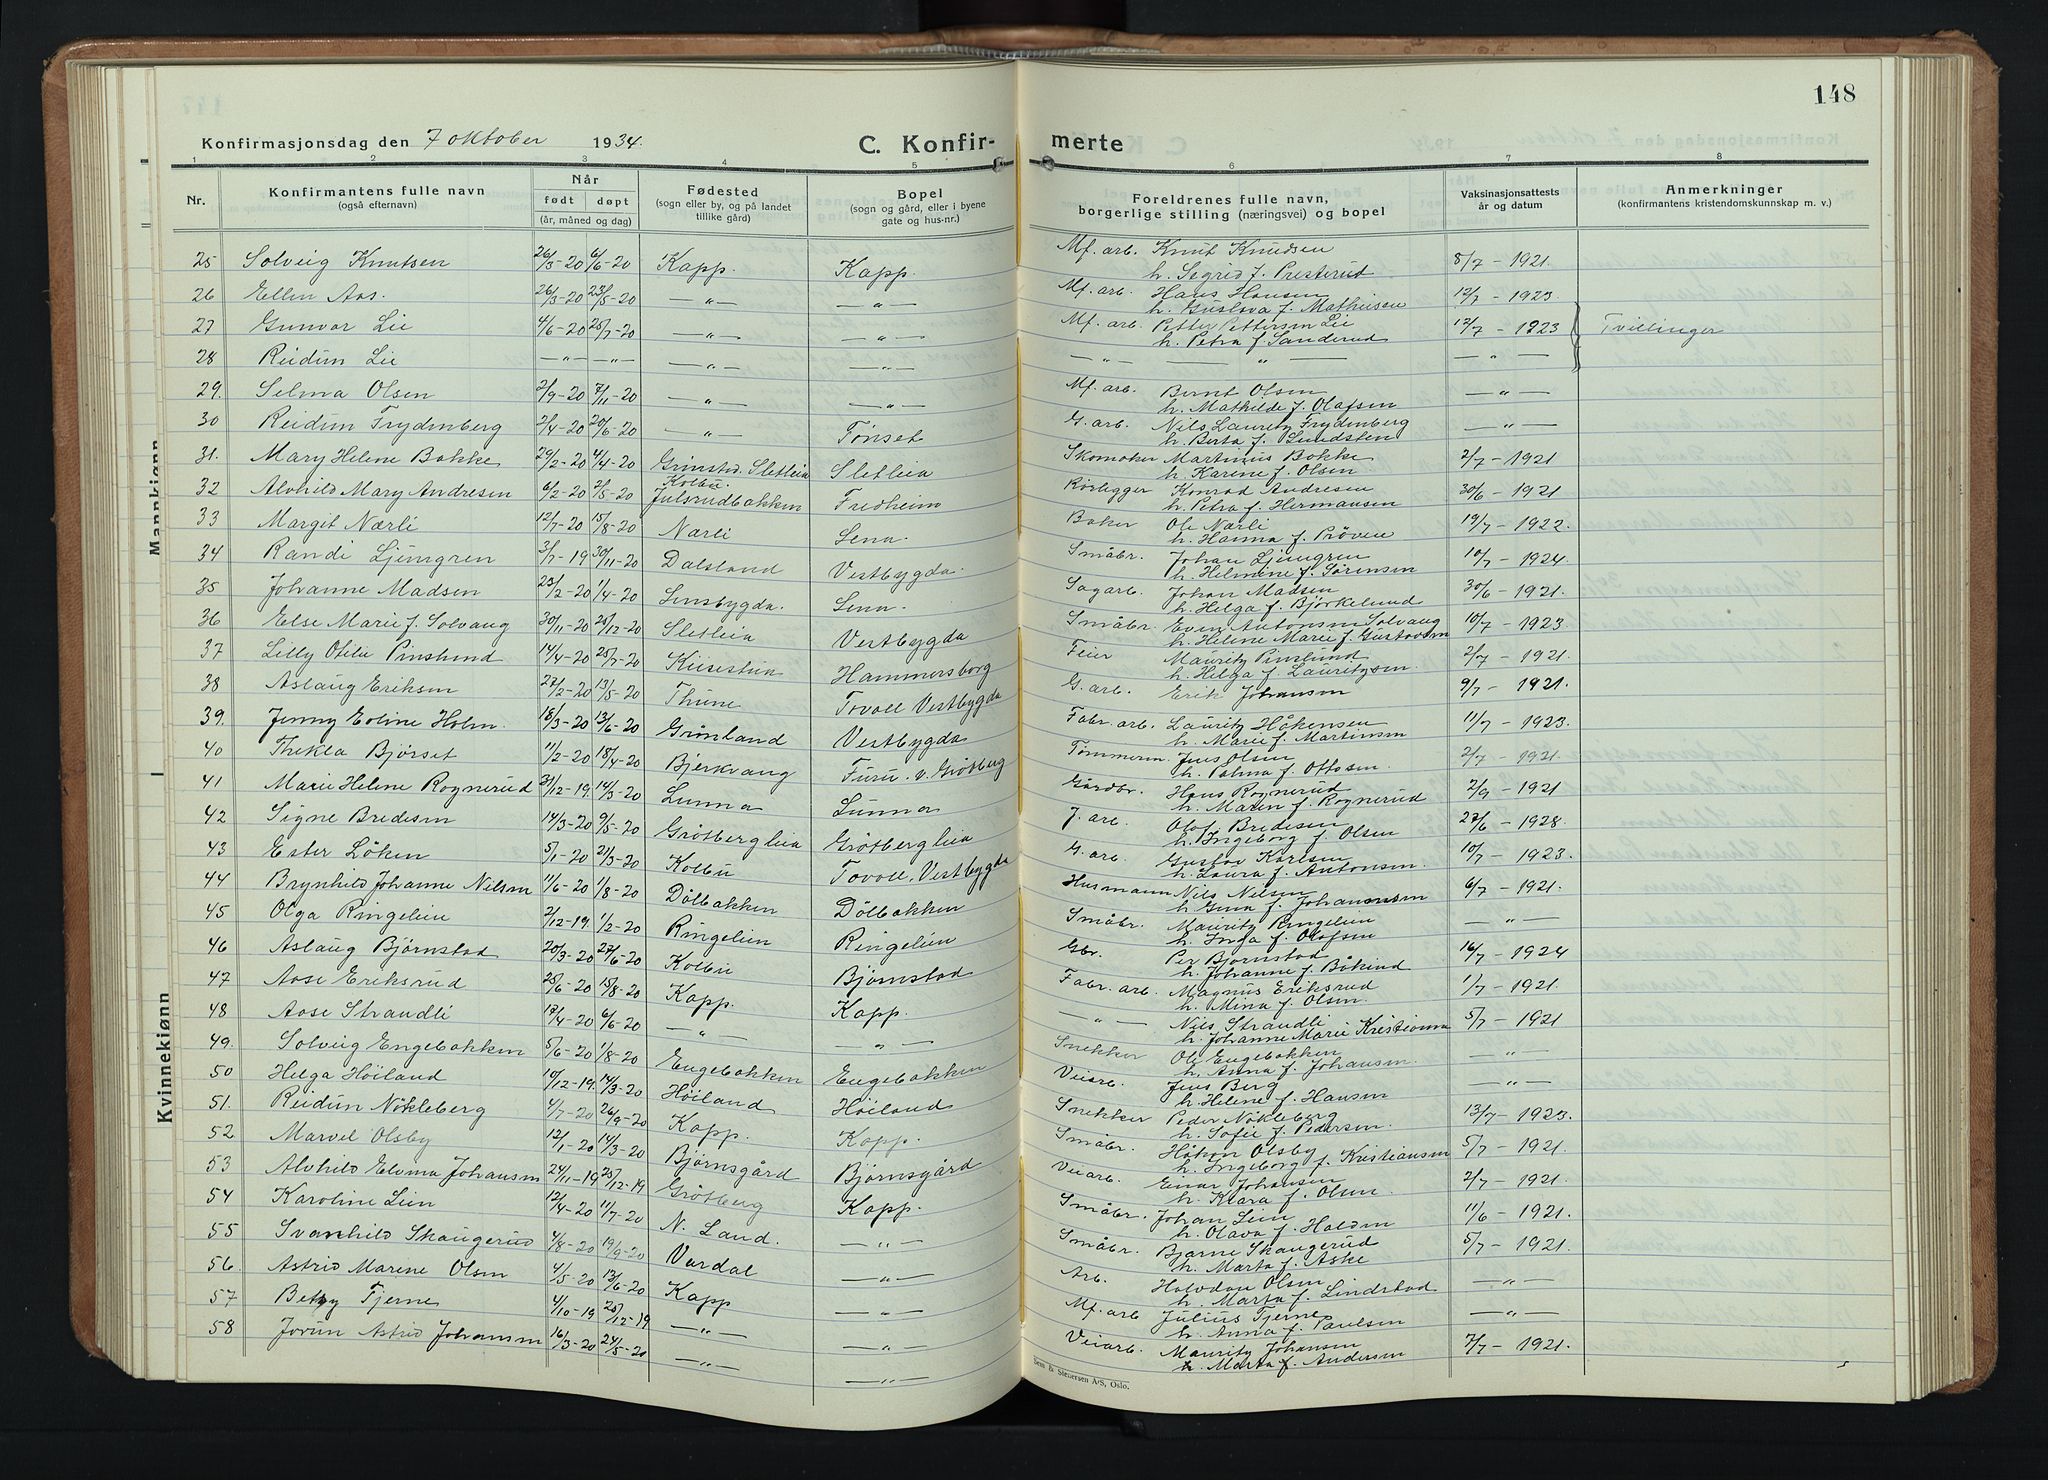 148
Konfirmasjonsdag den 7 oktober 1934. C. Konfir- merte
1 2 3 4 5 6 7 8
Nr. Konfirmantens fulle navn (også efternavn) Når født døpt (år, måned og dag) Fødested (sogn eller by, og på landet tillike gård) Bopel (sogn og gård, eller i byene gate og hus-nr.) Foreldrenes fulle navn, borgerlige stilling (næringsvei) og bopel Vaksinasjonsattests år og datum Anmerkninger (konfirmantens kristendomskunnskap m. v.)
Mannkjønn
Kvinnekjønn
25 Solveig Knutsen 26/3-20 6/6-20 Kapp. Kapp. Mf. arb. Knut Knudsen 8/7-1921.
h. Sigrid f. Presterud
26 Ellen Aas. 26/3-20 23/5-20 —"— —"— Mf. arb. Hans Hansen 12/7-1923.
h. Gustava f. Mathisen
27 Gunvor Lie 4/6-20 25/7-20 —"— —"— Mf. arb. Petter Pettersen Lie 12/7-1923 Tvillinger
h. Petra f. Sanderud
28 Reidun Lie —"— —"— —"— —"— —"— " —"—
29. Selma Olsen 2/9-20 7/11-20 —"— —"— Mf. arb. Bernt Olsen —"—
h. Mathilde f. Olafsen
30 Reidun Frydenberg 21/4-20 20/6-20 —"— Tønset G. arb. Nils Lauritz Frydenberg —"—
h. Berta f. Lundsten
31. Mary Helene Bakke 29/2-20 4/4-20 Grinstad. Sletleia Sletleia Skomaker Martinus Bakke 2/7-1921
h. Karene f. Olsen
32 Alvhild Mary Andresen 6/2-20 2/5-20 Kolbu. Julsrudbakken Fredheim Rørlegger Konrad Andresen 30/6-1921
h. Petra f. Hermansen
33 Margit Nærli 12/7-20 15/8-20 Nærli Lena. Baker Ole Nærli 19/7-1922.
h. Hanna f. Prøven
34 Randi Ljungren 3/7-19 30/11-20 Dalsland Vestbygda. Småbr. Johan Ljungren 10/7-1924
h. Helmine f. Sørensen
35 Johanne Madsen 23/2-20 1/4-20 Lensbygda. Lena. Sagarb. Johan Madsen 30/6-1921.
h. Helga f. Bjørkelund
36 Else Marie f. Solvang 30/11-20 26/12-20 Sletleia Vestbygda Småbr. Even Antonsen Solvang 10/7-1923.
h. Helene Marie f. Gustavsen
37 Lilly Otilie Pinslund 14/4-20 25/7-20 Kiseslia Hammersborg Feier Mauritz Pinslund 2/7-1921.
h. Helga f. Lauritzsen.
38 Aslaug Eriksen 27/2-20 13/5-20 Thune Tovoll Vestbygda G. arb. Erik Johansen 9/7-1921.
39. Jenny Eoline Holm. 18/3-20 13/6-20 Grønland Vestbygda Fabr. arb. Lauritz Håkensen 11/7-1923.
h. Marie f. Martinsen
40 Thekla Bjørset 11/2-20 18/4-20 Bjerkvang Furu. v. Grøtberg Tømmerm. Jens Olsen 2/7-1921.
h. Palma f. Ottosen.
41 Marie Helene Rognerud 31/12-19. 14/3-20 Lunna Lunna Gårdbr. Hans Rognerud 2/9-1921
h. Maren f. Rognerud
42 Signe Bredesen 14/3-20 9/5-20 Grøtbergleia Grøtbergleia J. arb. Olaf Bredesen 27/6-1928.
h. Ingeborg f. Olsen
43 Ester Løken 5/1-20 21/3-20 Kolbu Tovoll, Vestbygda G. arb. Gustav Karlsen 10/7-1923.
h. Laura f. Antonsen
44 Brynhild Johanne Nilsen 11/6-20 1/8-20 Dølbakken Dølbakken Husmann Nils Nilsen 6/7-1921.
h. Gina f. Johannesen
45 Olga Ringelien 2/12-19. 1/2-20 Ringelien Ringelien Småbr. Mauritz Ringelien —"—
h. Inga f. Olafsen
46 Aslaug Bjørnstad 20/3-20 27/6-20 Kolbu Bjørnstad Gbr. Per Bjørnstad 16/7-1924
h. Johanne f. Båkind
47 Aase Eriksrud 25/6-20 15/8-20 Kapp. Kapp. Fabr. arb. Magnus Eriksrud 1/7-1921.
h. Mina f. Olsen.
48 Aase Strandli 17/4-20 6/6-20 —"— —"— —"— Nils Strandli 5/7-1921
h. Johanne Marie Kristianna
49. Solveig Engebakken 5/6-20 1/8-20 Engebakken Engebakken Snekker Ole Engebakken —"—
h. Anna f. Johansen.
50 Helga Høiland 10/12-19. 14/3-20 Høiland Høiland Veiarb. Jens Berg —"—
h. Helene f. Hansen
51. Reidun Nøkleberg 4/7-20 26/9-20 Kapp. Kapp. Snekker Peder Nøkleberg 13/7-1923.
h. Sofie f. Pedersen.
52 Marvel Olsby 12/1-20 14/3-20 Bjørnsgård Bjørnsgård Småbr. Håkon Olsby 5/7-1921.
h. Ingeborg f. Kristiansen
53 Alvhild Elvina Johansen 24/11-19 25/12-19 Grøtberg Kapp. Veiarb. Einar Johansen 2/7-1921.
h. Klara f. Olsen.
54 Karoline Lien 12/4-20 11/7-20 N. Land. —"— Småbr. Johan Lien 11/6-1921.
h. Olava f. Halden
55 Svanhild Skaugerud 4/8-20 19/9-20 Vardal —"— Småbr. Bjarne Skaugerud 5/7-1921.
h. Marta f. Aske
56. Astrid Marene Olsen 4/5-20 13/6-20 Kapp —"— Arb. Halvdan Olsen —"—
h. Marta f. Lindstad
57 Betzy Tjerne 4/10-19 25/12-19 —"— —"— Mf. arb Julius Tjerne —"—
h. Anna f. Paulsen
58 Jorun Astrid Johansen 16/3-20 24/5-20 —"— —"— Veiarb. Mauritz Johansen 7/7-1921.
h. Marta f. Andersen
Sem & Stenersen A/S, Oslo.